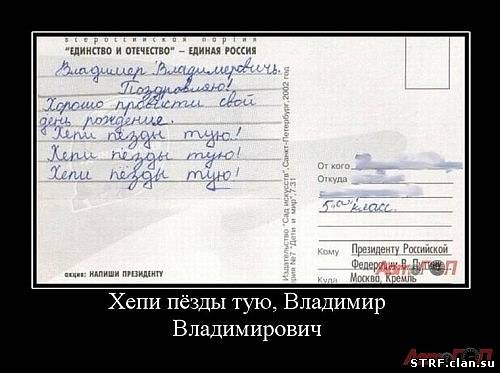 всероссийская партия
"ЕДИНСТВО И ОТЕЧЕСТВО" – ЕДИНАЯ РОССИЯ
Владимер Владимерович.
Поздровляю!
Хорошо провисти свой
день рождение.
Хепи пёзды тую!
Хепи пёзды тую!
Хепи пёзды тую!
акция: НАПИШИ ПРЕЗИДЕНТУ
Издательство "Сад искусств", Санкт-Петербург, 2002 год
рия №7 "Дети и мир", 7.31
От кого
Откуда
5 "а" класс.
Кому Президенту Российской
Федерации В. Путину
Куда Москва, Кремль
Хепи пёзды тую, Владимир
Владимирович
STRF.clan.su